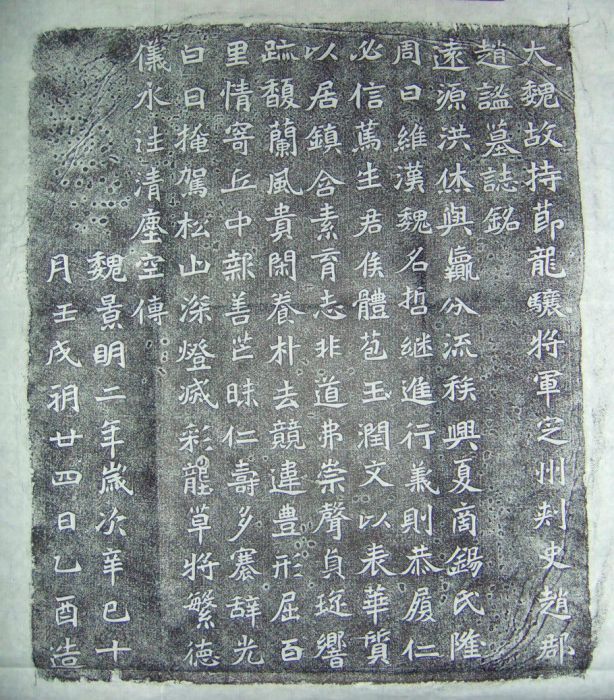 大魏故持節龍驤將軍定州刾史趙郡
趙謐墓誌銘
遠源洪休與嬴分流族興夏商錫氏隆
周曰維漢魏名哲継進行兼則恭履仁
必信篤生君侯體苞玉潤文以表華質
以居鎮含素育志非道弗崇聲貞琁響
跡馥蘭風貴閑養朴去競違豊形屈百
里情寄丘中報善芒昧仁壽多褰辞光
白日掩駕松山深燈滅彩壟草將繁德
儀永往清塵空傳
魏景明二年歲次辛巳十
月壬戌朔廿四日乙酉造